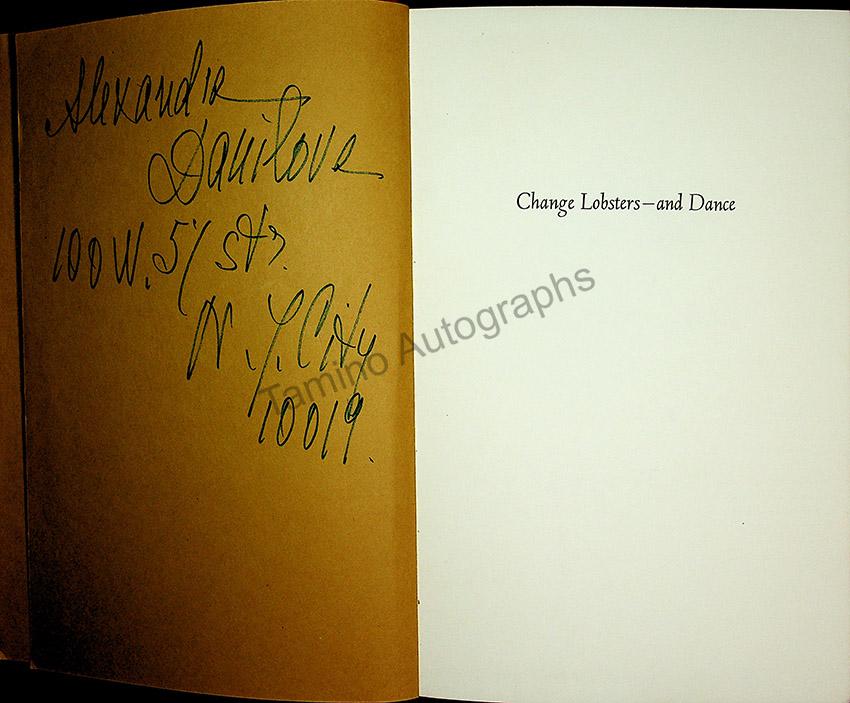 Alexandra
Danilova
100 W. 57 str.
N. Y. City
10019.
Change Lobsters—and Dance
Tamino Autographs